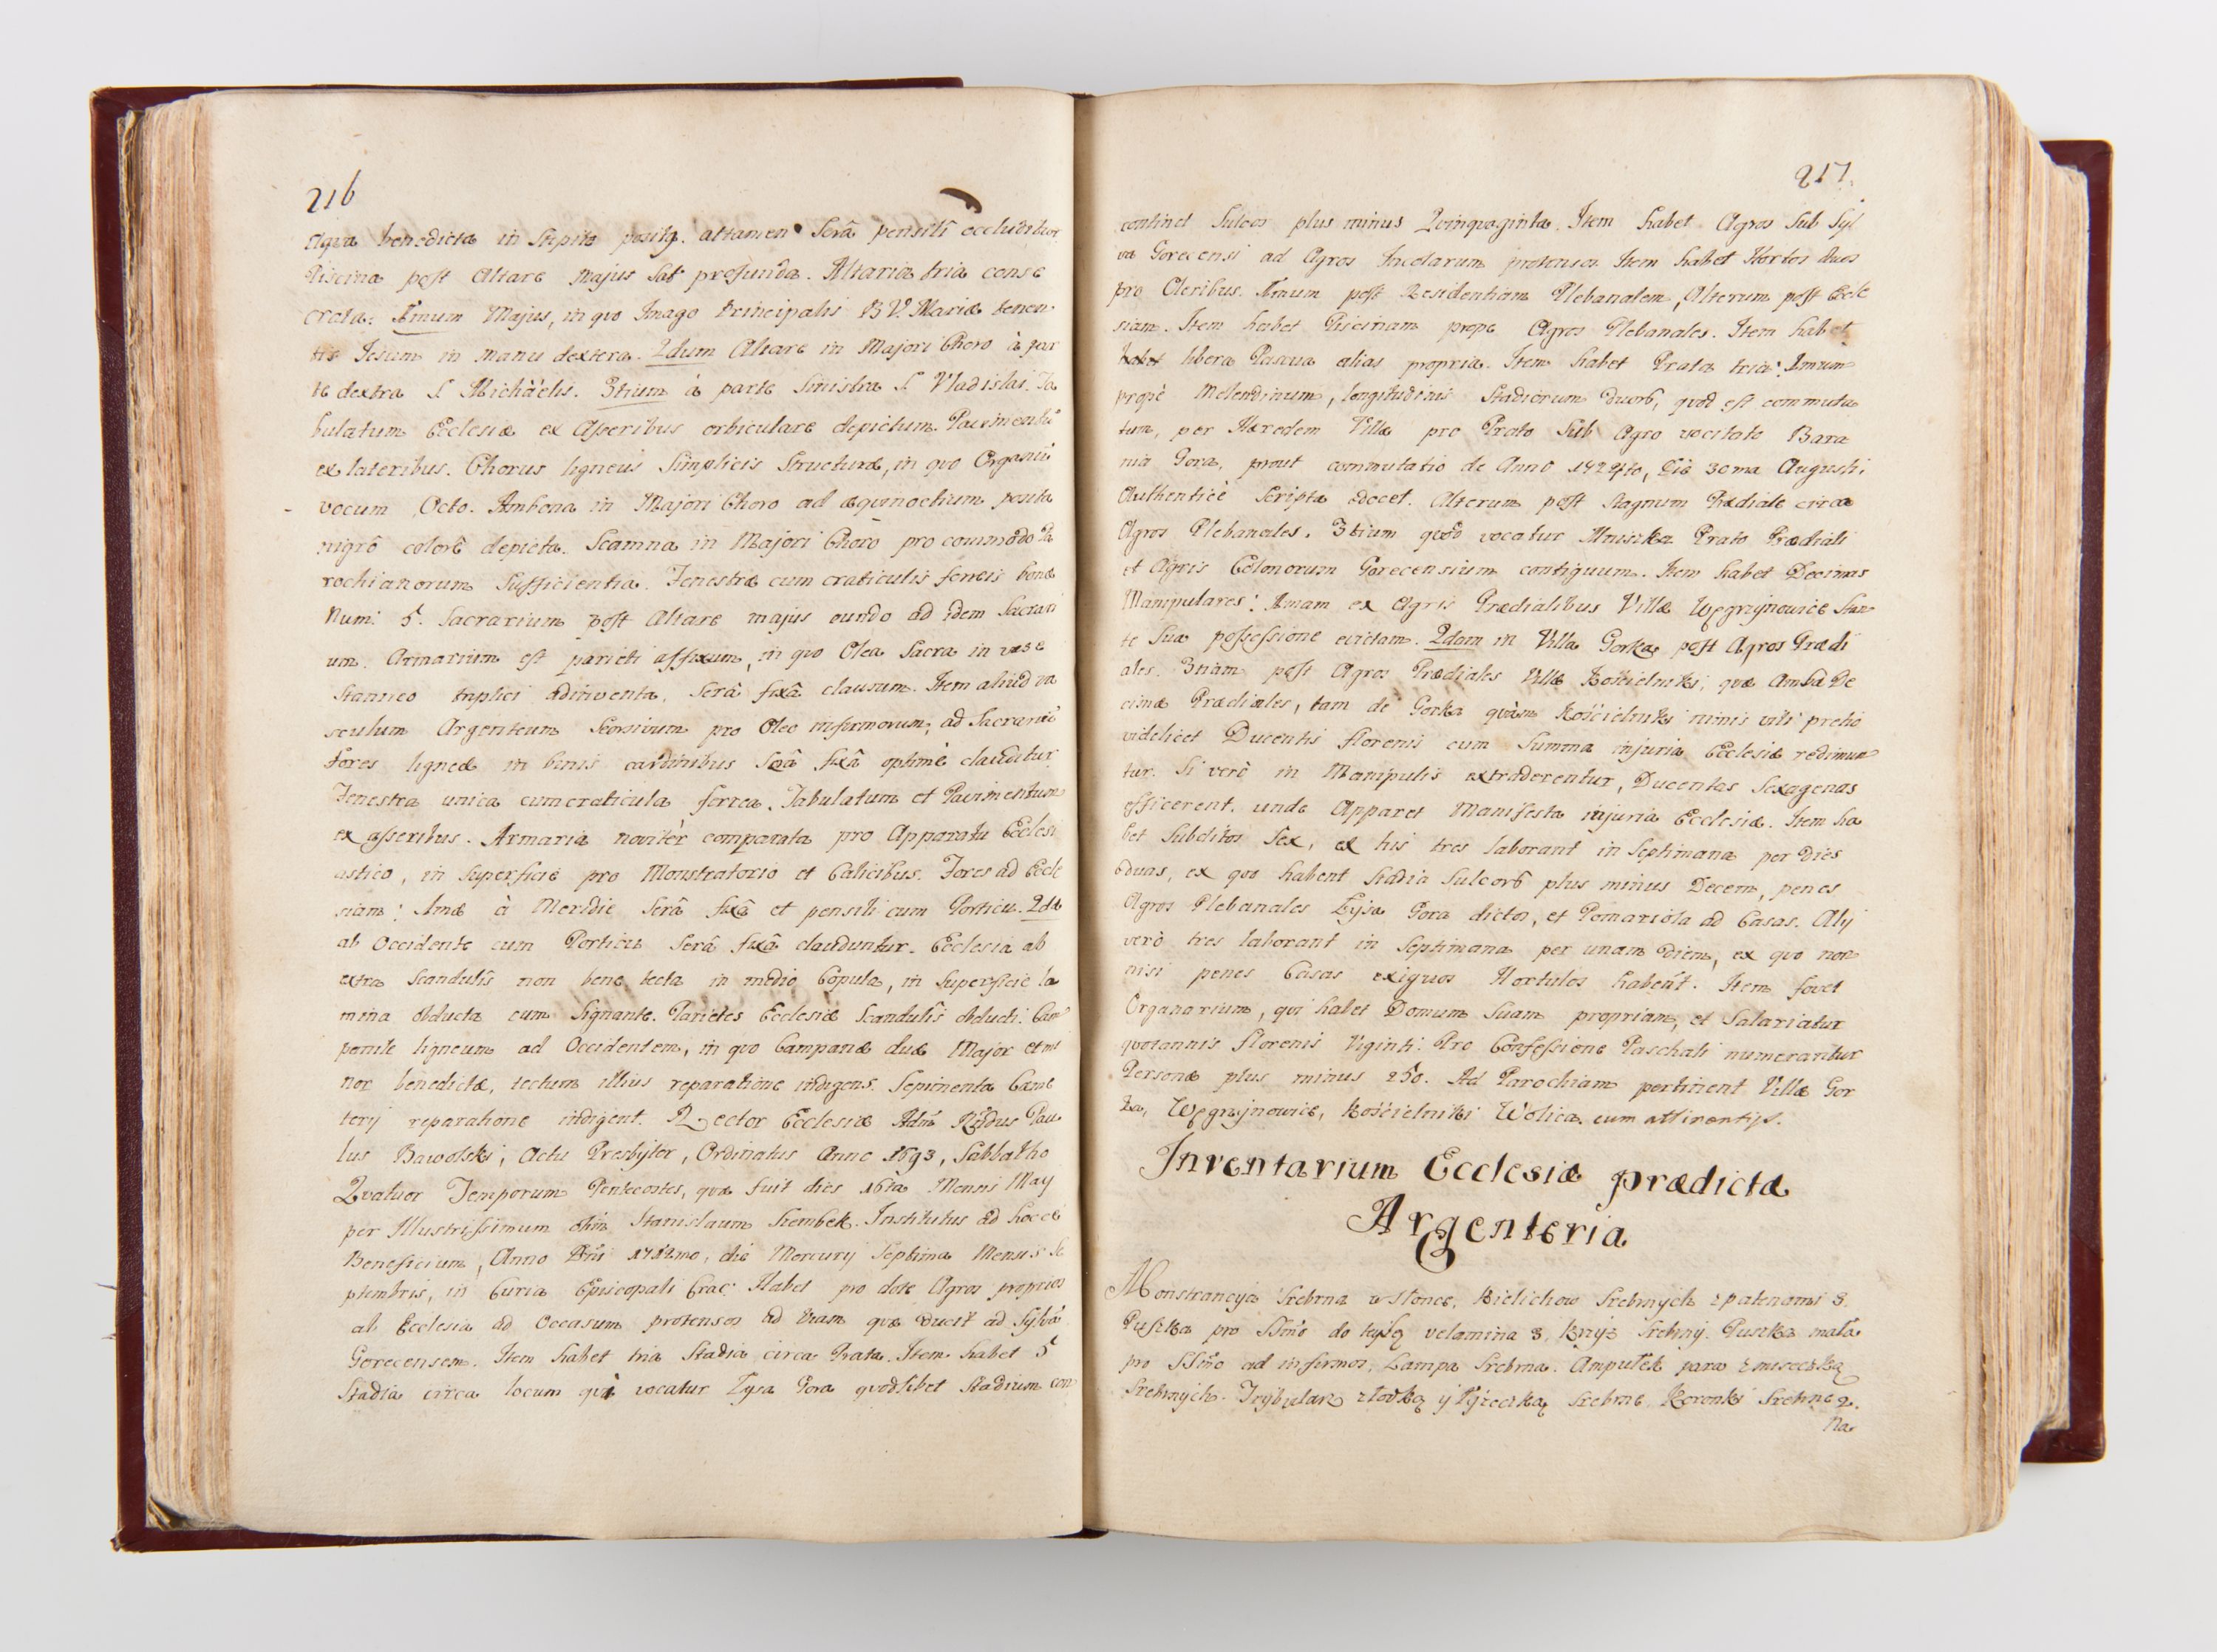 216
Aqua benedicta in Stipite positq. attamen Serâ pensili occluditur
Piscina post Altare Majus Sat profunda. Altaria tria conse
crata: Imum Majus, in quo Imago Principalis B V Mariæ tenen
tis Jesum in manu dextera. 2dum Altare in Majori Choro à par
te dextra S Michäelis. 3tium à parte Sinistra S Vladislai. Ta
bulatum Ecclesiæ ex Asseribus orbiculare depictum. Pavimentū
ex lateribus. Chorus ligneus Simplicis Structuræ, in quo Organū
vocum Octo. Ambona in Majori Choro ad æquinoctium posita
nigrô colorê depicta. Scamna in Majori Choro pro commodo Pa
rochianorum Sufficientia. Fenestræ cum craticulis ferreis bonæ
Num: 5. Sacrarium post Altare majus eundo ad idem Sacrari
um. Armarium est parieti affixum, in quo Olea Sacra in vase
Stanneo triplici adinventa, Serâ fixâ clausum. Item aliud va
sculum Argenteum Seorsivum pro Oleo infirmorum; ad Sacrariū
Fores ligneæ in binis cardinibus Serâ fixâ optimè clauditur
Fenestra unica cum craticula ferrea. Tabulatum et Pavimentum
ex asseribus. Armaria novitèr comparata pro Apparatu Ecclesi
astico, in Superficie pro Monstratorio et Calicibus. Fores ad Eccle
siam: Imæ à Meridie Serâ fixâ et pensili cum Porticu. 2dæ
ab Occidente cum Porticu Serâ fixâ clauduntur. Ecclesia ab
extra Scandulis non bene tecta in medio Copula, in Superficie la
mina obducta cum Signante. Parietes Ecclesiæ Scandulis obducti. Cam
panile ligneum ad Occidentem, in quo Campanæ duæ Major et mi
nor benedictæ, tectum illius reparatione indigens. Sepimenta Cæme
terij reparatione indigent. Rector Ecclesiæ Adm Rndus Pau
lus Bawolski, Actu Presbyter, Ordinatus Anno 1693, Sabbatho
Quatuor Temporum Pentecostes, quæ fuit dies 16ta Mensis May
per Illustrissimum olim Stanislaum Szembek. Institutus ad hocce
Beneficium, Anno Dni 1712mo, die Mercurij Septima Mensis Se
ptembris, in Curia Episcopali Crac: Habet pro dote Agros proprios
ab Ecclesia ad Occasum protensos ad Viam quæ ducit ad Sylvā
Gorecensem. Item habet tria Stadia circa Prata. Item habet 5
Stadia circa locum qui vocatur Łysa Gora quodlibet Stadium con
217.
continet Sulcos plus minus Quinquaginta. Item habet Agros Sub Syl
va Gorecensi ad Agros Incolarum protensos Item habet Hortos duos
pro Oleribus. Imum post Residentiam Plebanalem, Alterum post Eccle
siam. Item habet Piscinam prope Agros Plebanales. Item habet
habet libera Pascua alias propria. Item habet Prata tria: Imum
propè Molendinum, longitudinis Stadiorum duorū, quod est commuta
tum, per Hæredem Villæ pro Prato Sub Agro vocitato Bara
nia Gora, prout commutatio de Anno 1724to, Die 30ma Augusti,
Authenticè Scripta docet. Alterum post Stagnum Prædiale circa
Agros Plebanales. 3tium quod vocatur Mnuszka Prato Prædiali
et Agris Colonorum Gorecensium contiguum. Item habet Decimas
Manipulares: Imam ex Agris Prædialibus Villæ Węgrzynowice Stan
te Sua possessione evictam. 2dam in Villa Gorka post Agros Prædi
ales. 3tiam post Agros Prædiales Villæ Kościelniki, quæ Ambæ De
cimæ Prædiales, tam de Gorka quàm Kościelniki nimis vili pretio
videlicet Ducentis florenis cum Summa injuria Ecclesiæ redimun
tur. Si verò in Manipulis extraderentur, Ducentas Sexagenas
efficerent. unde Apparet Manifesta injuria Ecclesiæ. Item ha
bet Subditos Sex, ex his tres laborant in Septimana per dies
duas, ex quo habent Stadia Sulcorū plus minus Decem, penes
Agros Plebanales Łysa Gora dictos, et Pomariola ad Casas. Alij
verò tres laborant in Septimana per unam diem, ex quo non
nisi penes Casas exiguos Hortulos habent. Item fovet
Organarium, qui habet Domum Suam propriam, et Salariatur
quotannis florenis Viginti. Pro Confessione Paschali numerantur
Personæ plus minus 250. Ad Parochiam pertinent Villæ Gor
ka, Węgrzynowice, Kościelniki Wolica cum attinentijs.
Inventarium Ecclesiæ prædictæ
Argenteria
Monstrancya Srebrna w Słonce, Kielichow Srebrnych z patenami 3.
Puszka pro SSmo do tyſz velamina 3, Krzyż Srebrny. Puszka mała
pro SSmo ad infirmos; Lampa Srebrna. Ampułek para z miseczką
Srebrnych. Trybularz z łodką y łyżeczką Srebrne Koronki Srebrne 2.
Na